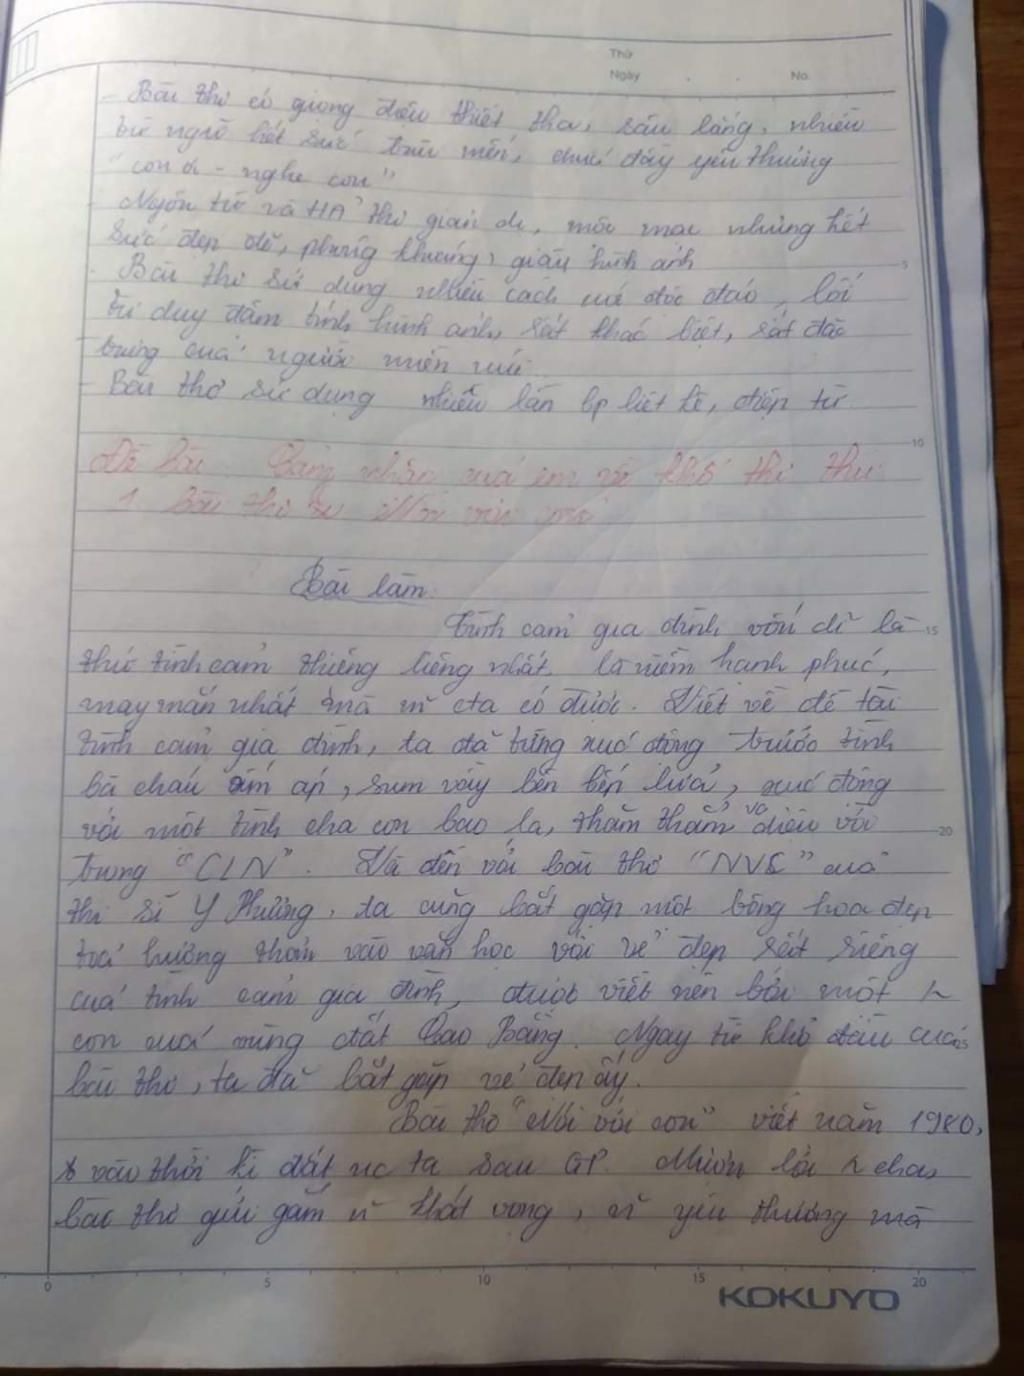 Thứ
Ngày . . No.
- Bài thơ có giọng điệu thiết tha, sâu lắng, nhiều
từ ngữ hết sức trìu mến, chứa đầy yêu thương
"con ơi - nghe con"
- Ngôn từ và HA thơ giản dị, mộc mạc nhưng hết
sức đẹp đẽ, phóng khoáng, giàu hình ảnh
- Bài thơ sử dụng nhiều cách nói độc đáo, lối
tư duy đậm tính hình ảnh, rất khác biệt, rất đặc
trưng của người miền núi.
- Bài thơ sử dụng nhiều lần bp liệt kê, điệp từ
Đề bài: Cảm nhận của em về khổ thơ thứ
1 bài thơ Nói với con
Bài làm:
Tình cảm gia đình vốn dĩ là
thứ tình cảm thiêng liêng nhất, là niềm hạnh phúc,
may mắn nhất mà cta có được. Viết về đề tài
tình cảm gia đình, ta đã từng xúc động trước tình
bà cháu ấm áp, sum vầy bên bếp lửa, xúc động
với một tình cha con bao la, thăm thẳm và diệu vời
trong "CLN". Và đến với bài thơ "NVC" của
thi sĩ Y Phương, ta cũng bắt gặp một bông hoa đẹp
toả hương thơm vào văn học với vẻ đẹp rất riêng
của tình cảm gia đình, được viết nên bởi một
con của vùng đất Cao Bằng. Ngay từ khổ đầu của
bài thơ, ta đã bắt gặp vẻ đẹp ấy.
Bài thơ "Nói với con" viết năm 1980,
vào thời kì đất nc ta sau GP. Mượn lời cha,
bài thơ gửi gắm khát vọng, yêu thương mà
0 5 10 15 20
KOKUYO